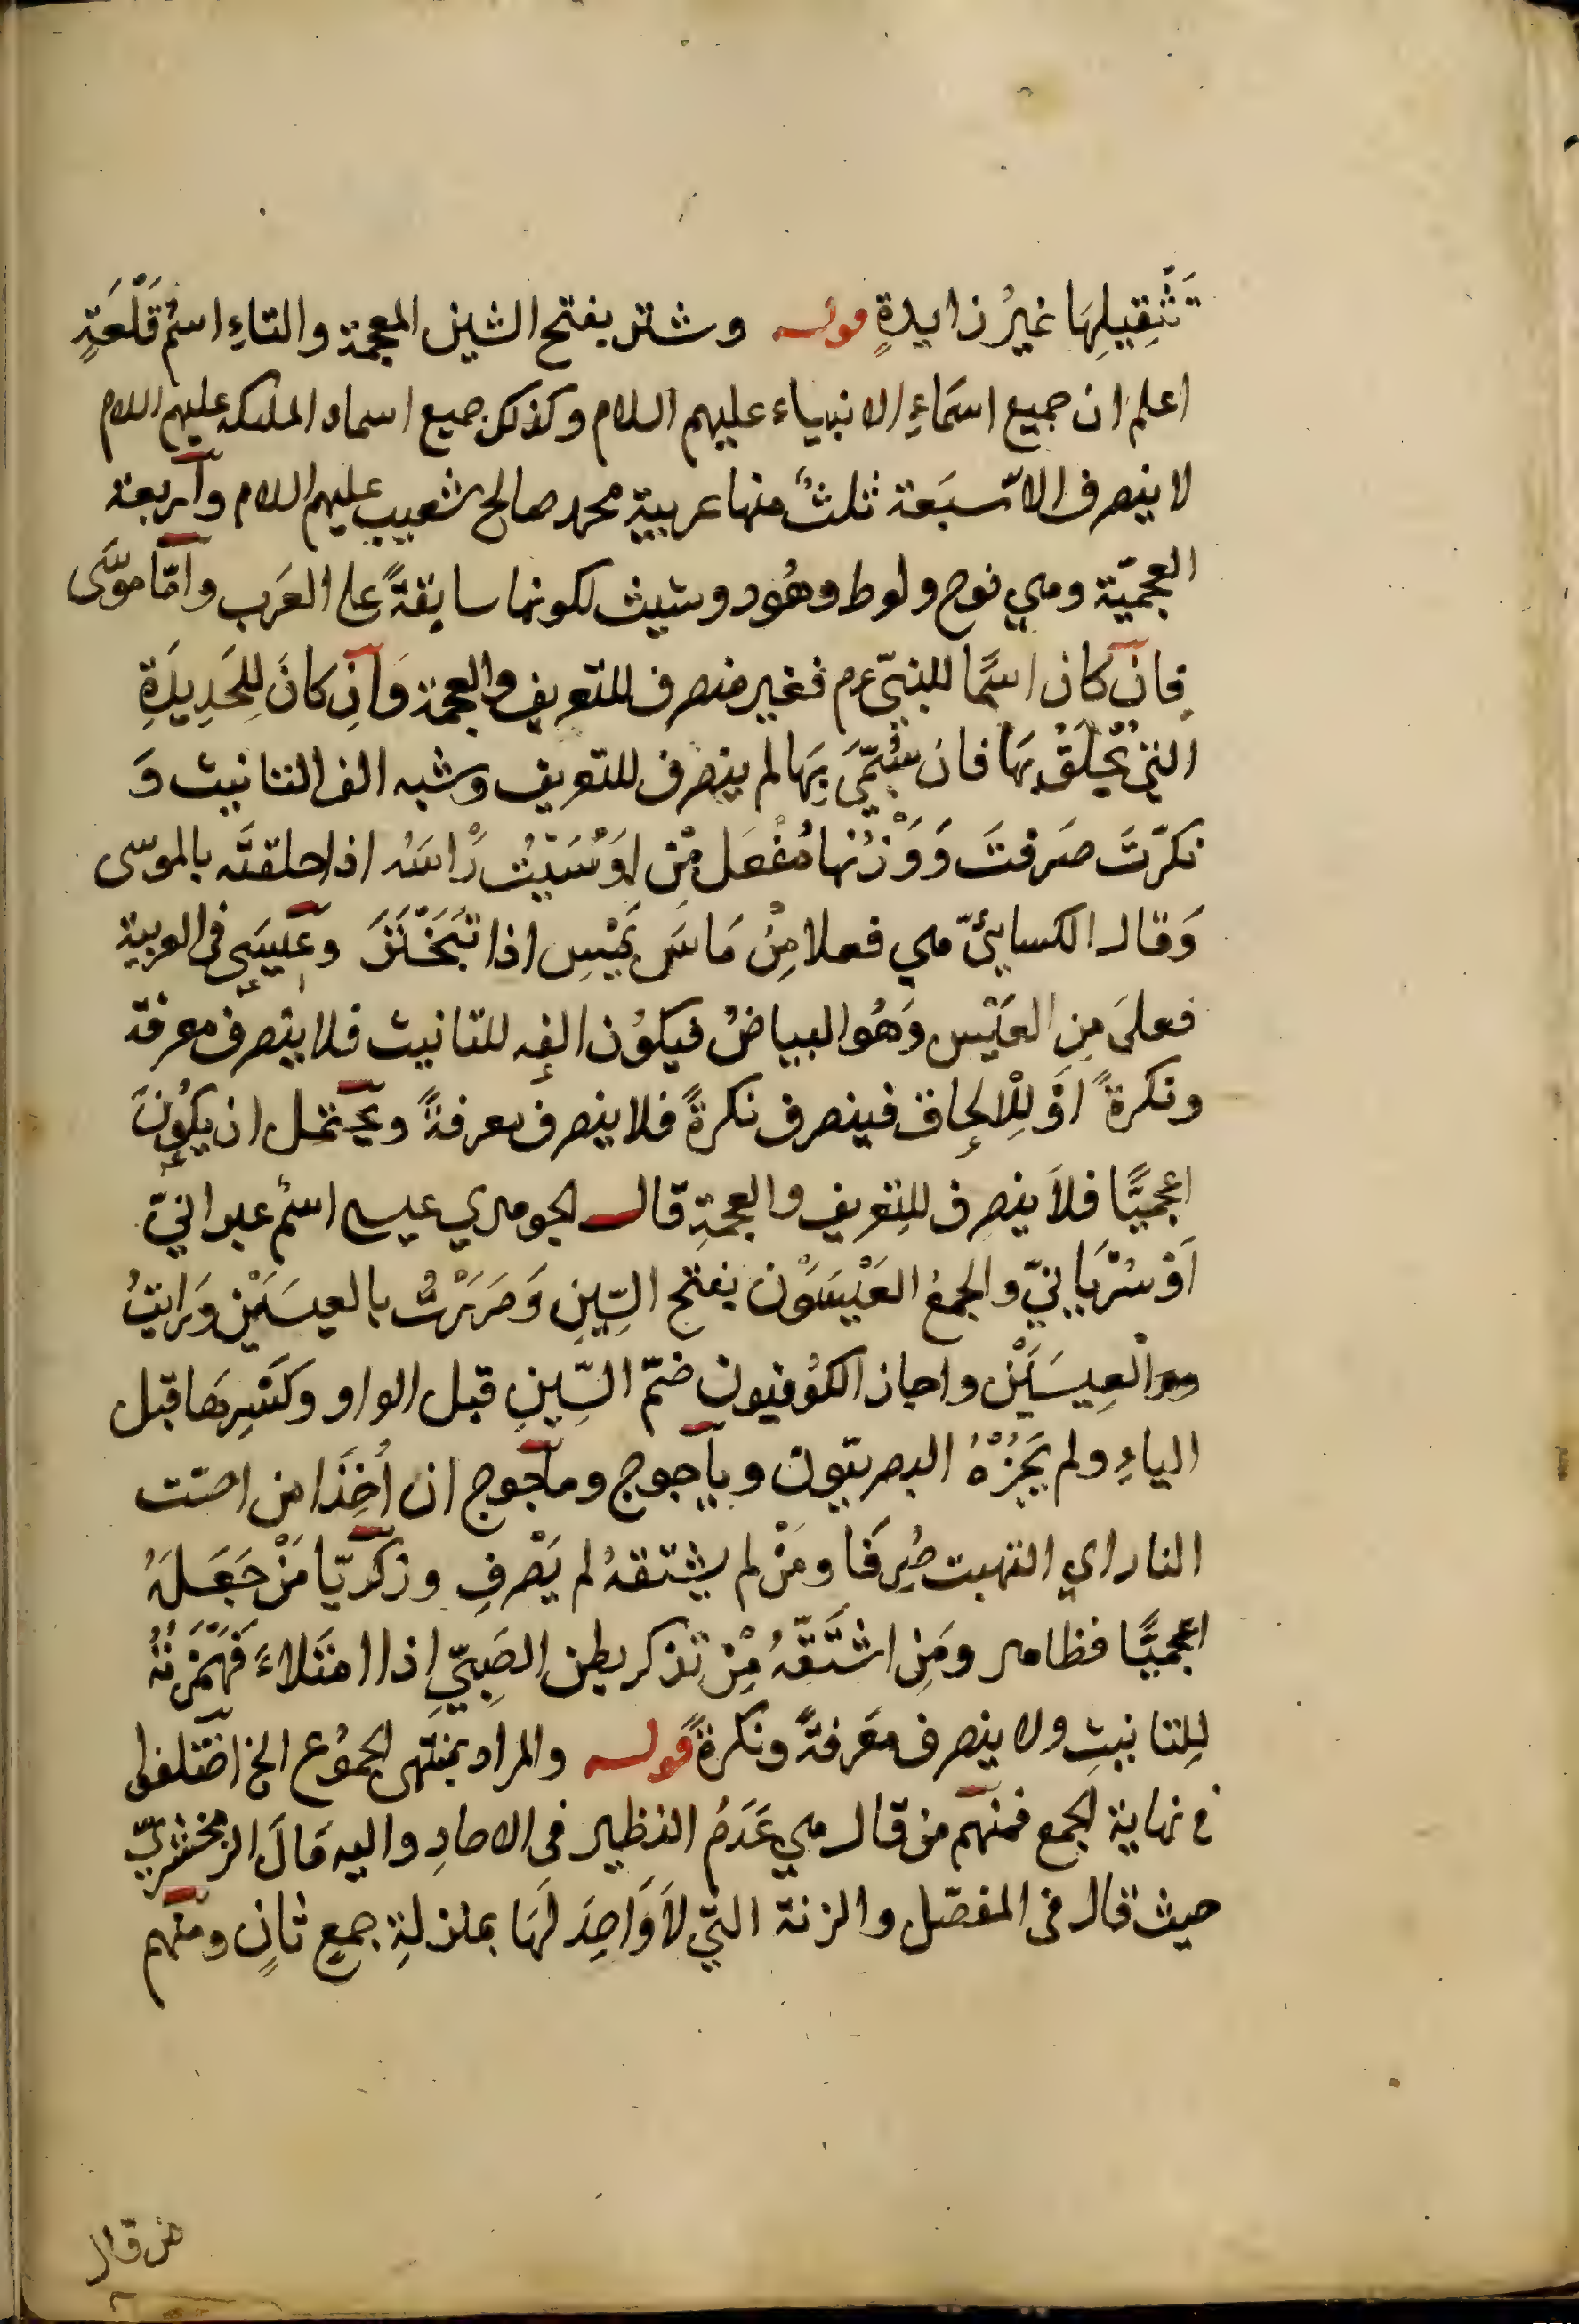 تَثْقِيلِهَا غيرُ زايدةٍ قوله وشتر بفتح الشين المعجمة والتاءِ اسمُ قَلْعَةٍ
اعلم ان جميع اسمَاءِ الانبياء عليهم السلام وكذلك جميع اسماء الملئكه عليهم السلام
لا ينصرف الاّ سبَعة ثلثٌ منها عربية محمد صالح شعيب عليهم السلام وأربعة
العجميّة وهي نوح ولوط وهُود وشيث لكونها سابِقةً على العَرب وأمّا موسَى
فان كان اسمًا للنبيّ عم فغير منصرف للتعريف والعجمة وَان كانَ لِلحَدِيدَةِ
التي يُحلَقُ بهَا فان سُمّيَ بِهَا لم ينصرف للتعريف وشبه الف التانيث وَ
نكرّتَ صَرفتَ وَوَزْنها مُفْعَل مِْن اوَْسَيْتُ رْاسَه اذا حلقتَه بالموسى
وَقال الكسايئّ هي فعلا مِنْ مَاسَ يَمِيْس اذا تبَخْتَرَ وعِيسَى فى العربية
فعلىَ مِن العَيْس وَهُو البياضُ فيكوُن الفه للتانيث فلا ينصرف معرفة
ونكرةً اوَْ لِلْالحاق فينصرف نكرةً فلا ينصرف معرفةً ويحتمل ان يكوُنَ
اعجميًّا فلاَ ينصرف للتعريف والعجمةِ قال الجوهري عيسى اسْم عبرانيّ
اَوْ سُرْيَانيّ والجمعُ العَيْسَوْن بفتح السِّينِ وَمَرَرْتُ بالعيسَيْن وَرَايتُ
العِيسَيْن واجاز الكوُفيون ضمّ السِّينِ قبل الواو وكَسْرِهَا قبل
الياءِ ولم يَجُزْهُ البصريّون ويأجوج ومأجوج ان اُخِذَا من اجّت
النار اي التهبت صُرِفَا ومَنْ لم يشتقهُ لم يَصْرفِ وزكريّا مَنْ جَعَلَهُ
اعجميًّا فظاهر ومَنِ اشتَقَّهُ مِْن تذكر بطن الصَبيِّ اِذا امتَلاءَ فَهَمْزَتهُ
لِلتانيثِ ولا ينصرف معَرفةً ونكرةً قوله والمراد بمنتهى الجموُع الخ اختلفوا
فى نهاية الجمع فمنهم من قال هي عَدَمُ النظير فى الاحادِ واليه مَالَ الزمخشريّ
حيث قال فى المفصّل والزنة التيّ لاَ وَاحِدَ لَهَا بمنزلةِ جمعٍ ثانٍ ومنهم
من قال